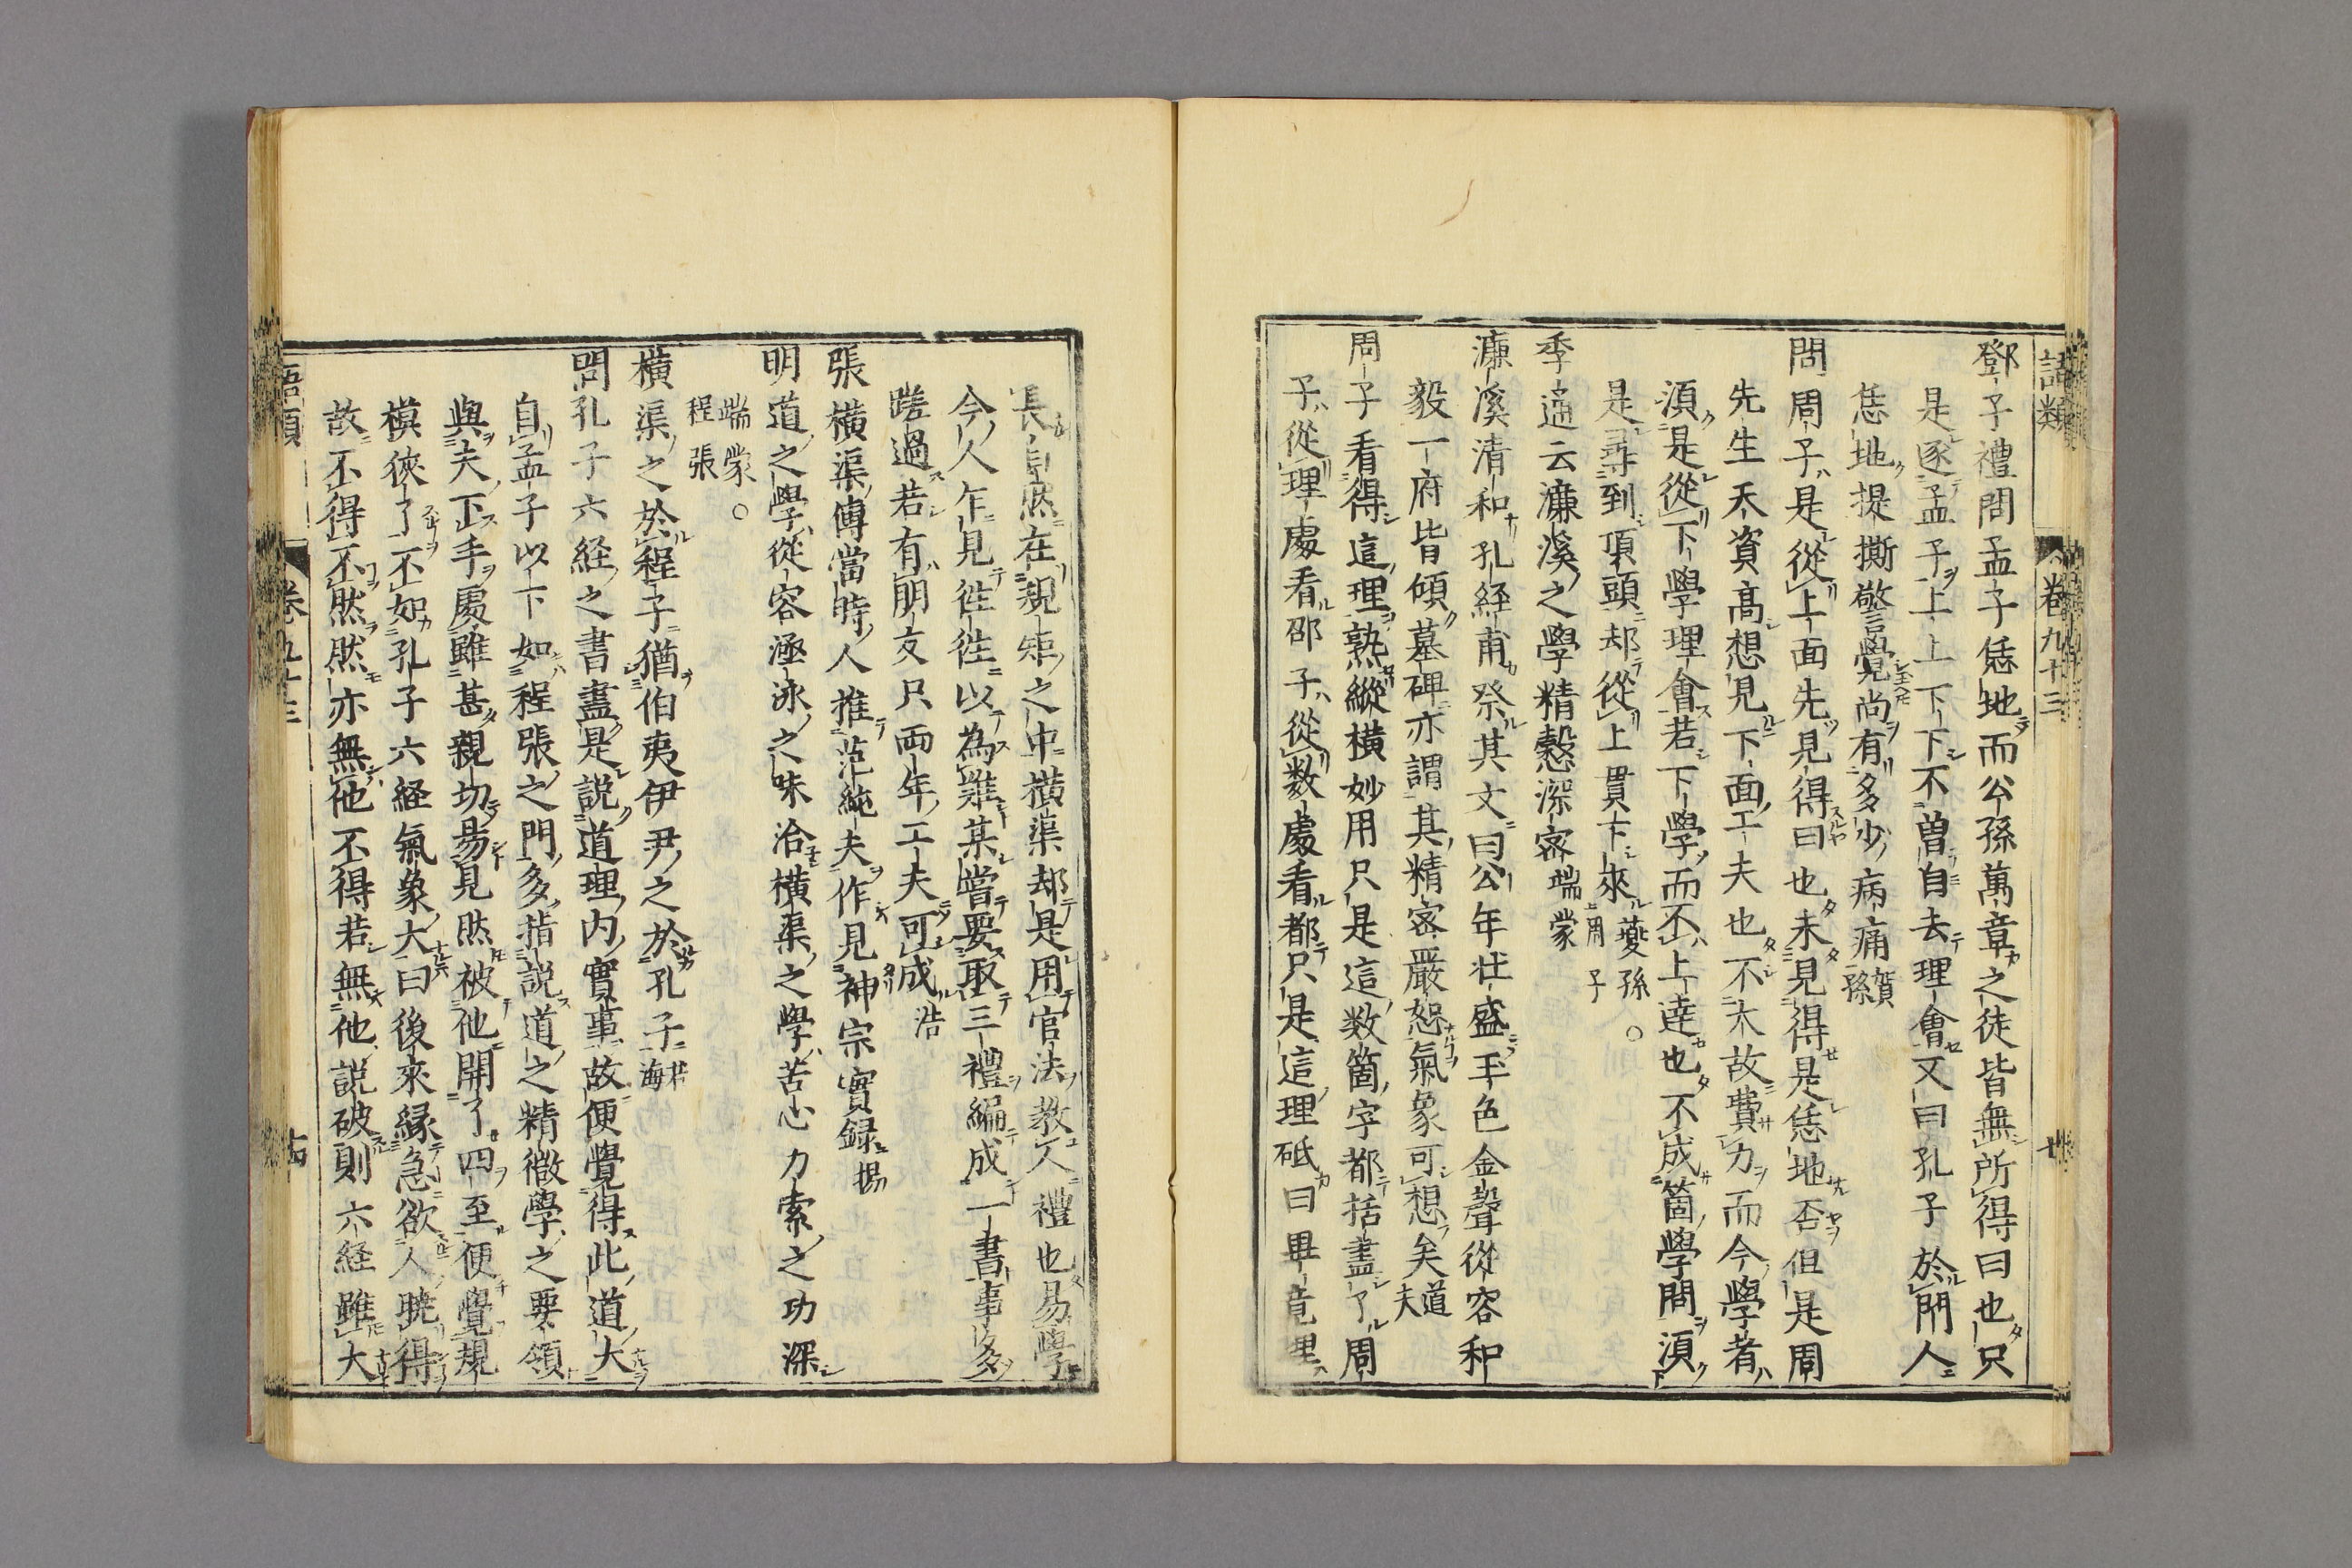 語類 卷九十三 十
鄧子禮問孟子恁地而公孫萬章之徒皆無所得曰也只
是逐孟子上上下下不曽自去理會又曰孔子於門人
恁地提撕警覺尚有多少病痛賀孫
問周子是從上面先見得曰也未見得是恁地否但是周
先生天資高想見下面工夫也不大故費力而今學者
須是從下學理會若下學而不上達也不成箇學問須
是尋到頂頭却從上貫下來夔孫 周子 ○
季通云濂溪之學精慤深宻端蒙
濂溪清和孔経甫祭其文曰公年壮盛玉色金聲從容和
毅一府皆傾墓碑亦謂其精宻嚴恕氣象可想矣道夫
周子看得這理熟縱横妙用只是這数箇字都括盡了周
子從理處看邵子從数處看都只是這理砥曰畢竟理
長自然在規矩之中横渠却是用官法教人禮也易學
今人乍見徃徃以為難某嘗要取三禮編成一書事多
蹉過若有朋友只両年工夫可成浩
張横渠傳當時人推范純夫作見神宗實録揚
明道之學從容涵泳之味洽横渠之學苦心力索之功深
端蒙 程張 ○
横渠之於程子猶伯夷伊尹之於孔子若海
問孔子六経之書盡是説道理内實事故便覺得此道大
自孟子以下如程張之門多指説道之精微學之要領
與夫下手處雖甚親切易見然被他開了四至便覺規
模狹了不如孔子六経氣象大曰後來縁急欲人曉得
故不得不然然亦無他不得若無他説破則六経雖大
語類 卷九十三 十四